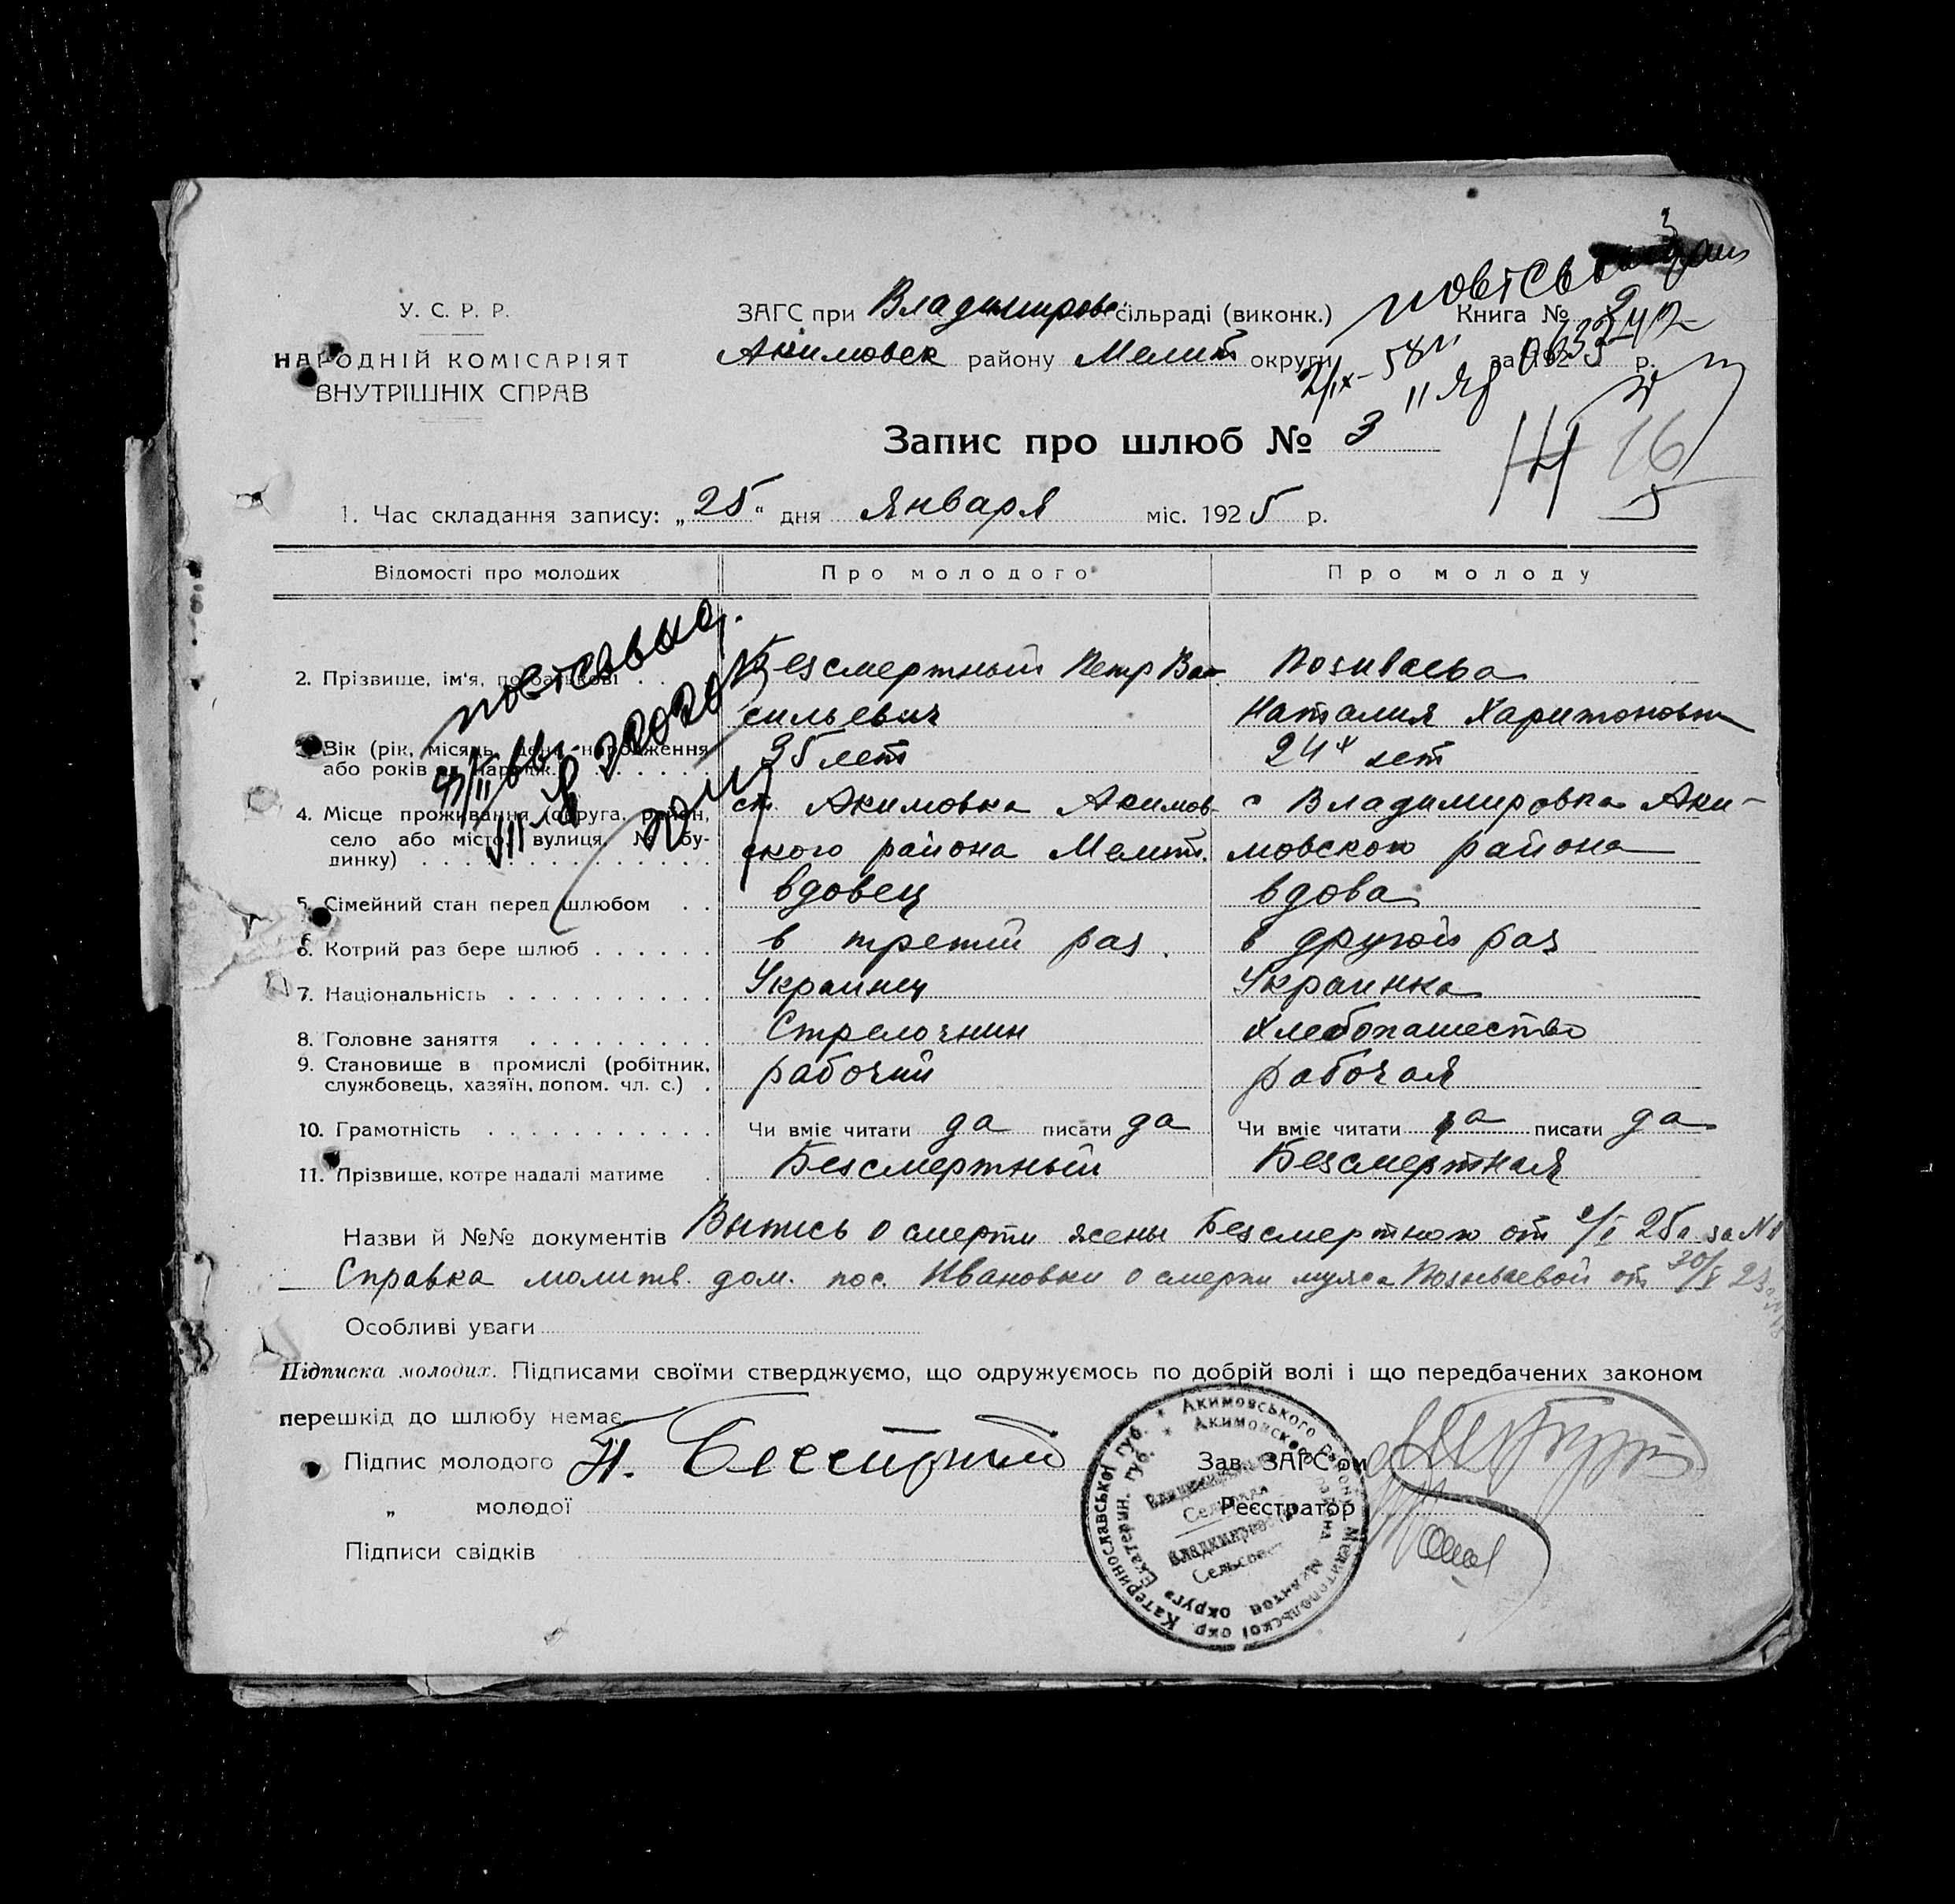 У. С. Р. Р.
НАРОДНІЙ КОМІСАРІЯТ
ВНУТРІШНІХ СПРАВ
ЗАГС при Владимирове сільраді (виконк.) Книга №
Акимовск району Мелит округи за 1925 р.
Запис про шлюб № 3
16
5
1. Час складання запису: „25“ дня Января міс. 1925 р.
Відомості про молодих Про молодого Про молоду
2. Прізвище, ім'я, по батькові Безсмертный Петр Ва- Позиваева
сильевич Наталия Харитоновна
3. Вік (рік, місяць, день народження 35 лет 24х лет
або років від народж.)
4. Місце проживання (округа, район, ст. Акимовка Акимов- с Владимировка Аки-
село або місто, вулиця, № бу-
динку) ского района Мелит. мовского района
5. Сімейний стан перед шлюбом вдовец вдова
6. Котрий раз бере шлюб в третий раз. в другой раз
7. Національність Украинец Украинка
8. Головне заняття Стрелочник Хлебопашество
9. Становище в промислі (робітник,
службовець, хазяїн, допом. чл. с.) рабочий рабочая
10. Грамотність Чи вміє читати да писати да Чи вміє читати да писати да
11. Прізвище, котре надалі матиме Безсмертный Безсмертная
Назви й №№ документів Выпись о смерти жены Безсмертного от за №
Справка молитв. дом. пос. Ивановки о смерти мужа Позиваевой от 20/V 23
Особливі уваги
Підписка молодих. Підписами своїми стверджуємо, що одружуємось по добрій волі і що передбачених законом
перешкід до шлюбу немає.
Підпис молодого П. Бессмертный Зав. ЗАГС'ом
„ молодої Реєстратор
Підписи свідків
Катеринославської губ. * Акимовського Мелитопольської окр.
Екатерин. губ. * Акимовского района Мелитоп. округа
Владимировский
Сельсовет